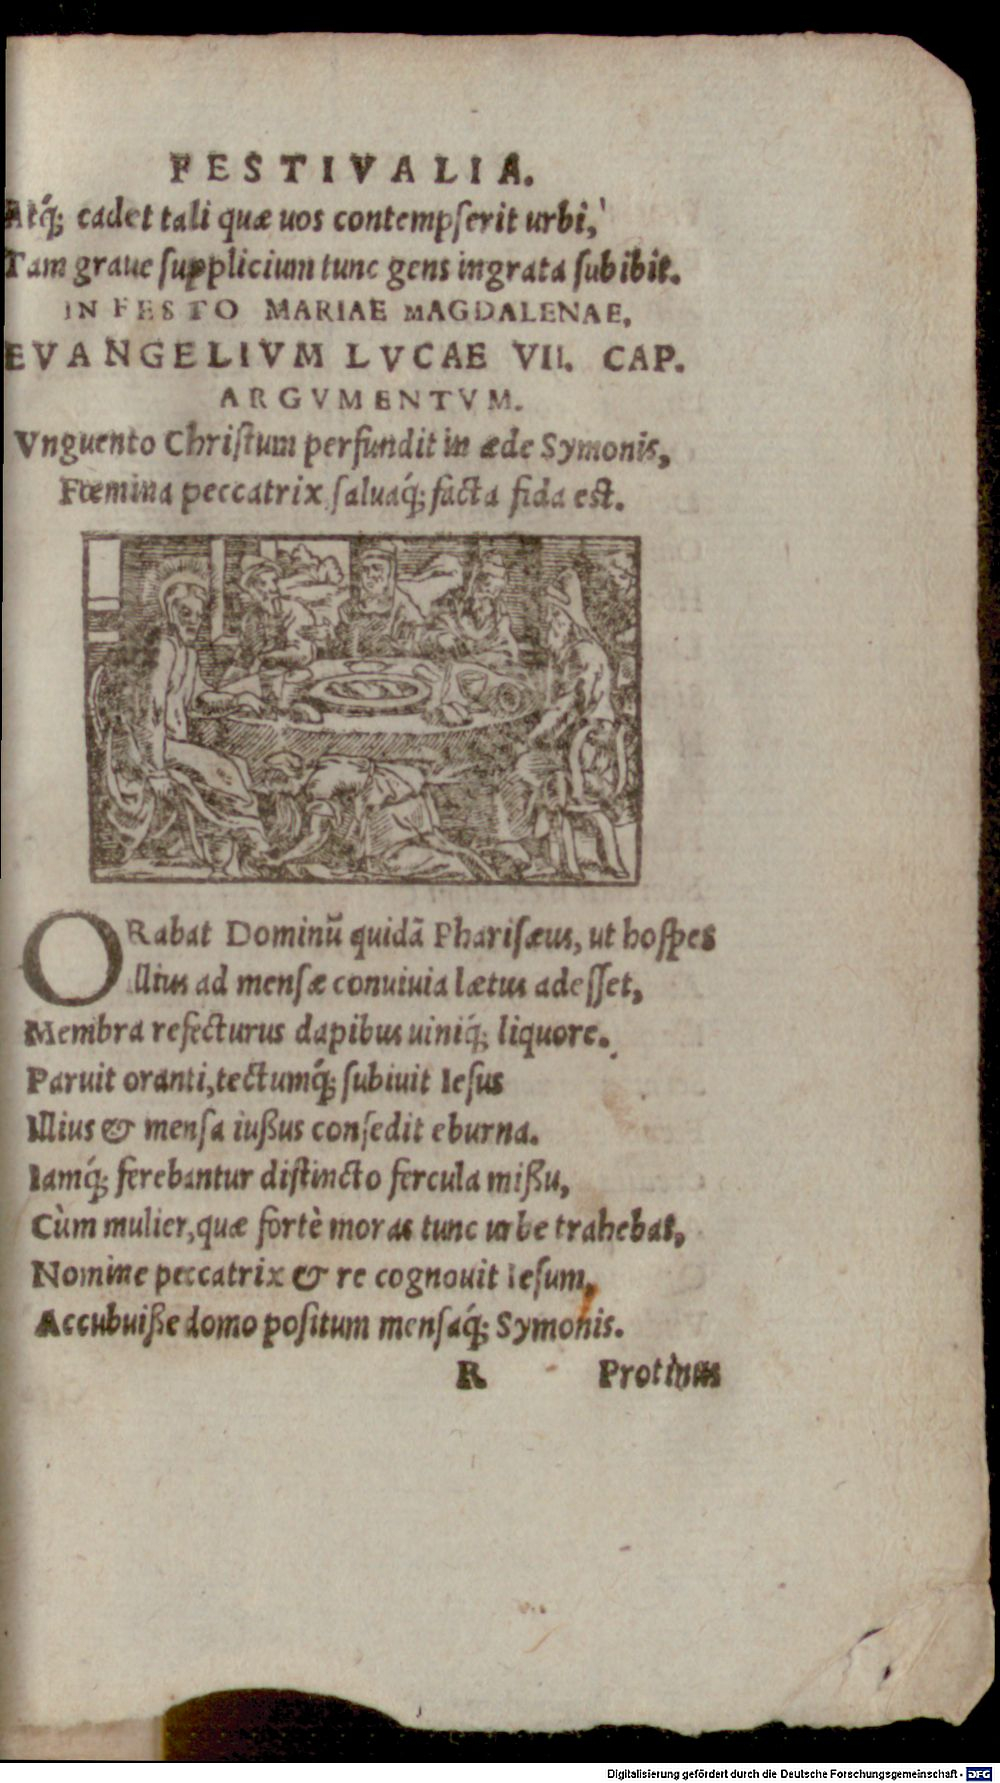 FESTIVALIA.
Atq́; cadet tali quæ uos contempſerit urbi,
Tam graue ſupplicium tunc gens ingrata ſubibit.
IN FESTO MARIAE MAGDALENAE,
EVANGELIVM LVCAE VII. CAP.
ARGVMENTVM.
Vnguento Chriſtum perfundit in æde Symonis,
Fœmina peccatrix ſaluaq́; facta fida eſt.
ORabat Dominũ quidã Phariſæus, ut hoſpes
Illius ad menſæ conuiuia lætus adeſſet,
Membra refecturus dapibus uiniq́; liquore.
Paruit oranti, tectumq́; ſubiuit Ieſus
Illius & menſa iußus conſedit eburna.
Iamq́; ferebantur diſtincto fercula mißu,
Cùm mulier, quæ fortè moras tunc urbe trahebat,
Nomine peccatrix & re cognouit Ieſum,
Accubuiße domo poſitum menſaq́; Symonis.
R Protinus
Digitalisierung gefördert durch die Deutsche Forschungsgemeinschaft - DFG